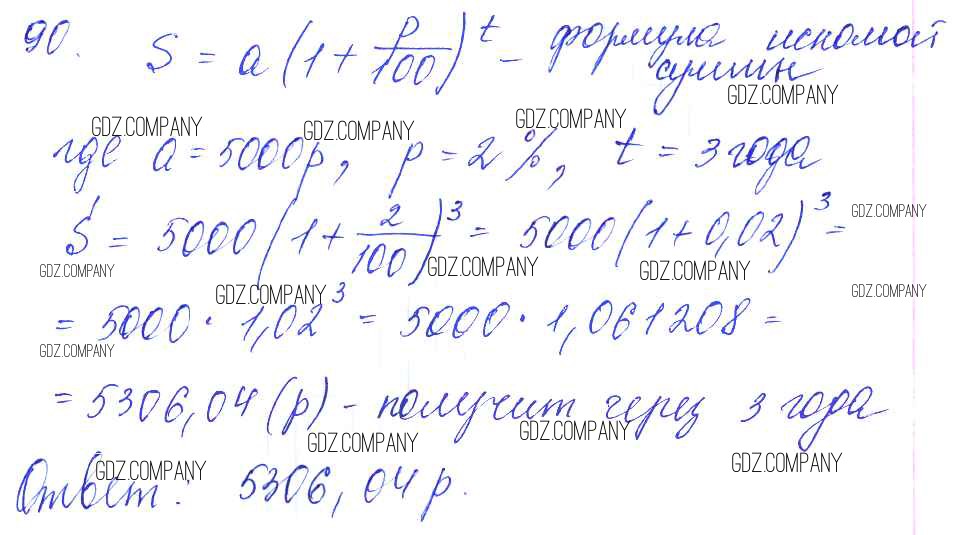 90. S = a(1 + p/100)^t - формула искомой
суммы
GDZ.COMPANY
GDZ.COMPANY GDZ.COMPANY GDZ.COMPANY
где a = 5000р, p = 2%, t = 3 года
S = 5000(1 + 2/100)^3 = 5000(1 + 0,02)^3 =
GDZ.COMPANY
GDZ.COMPANY GDZ.COMPANY GDZ.COMPANY
GDZ.COMPANY GDZ.COMPANY
= 5000 · 1,02^3 = 5000 · 1,061208 =
GDZ.COMPANY
= 5306,04 (р) - получит через 3 года
GDZ.COMPANY GDZ.COMPANY
GDZ.COMPANY GDZ.COMPANY
Ответ: 5306,04 р.